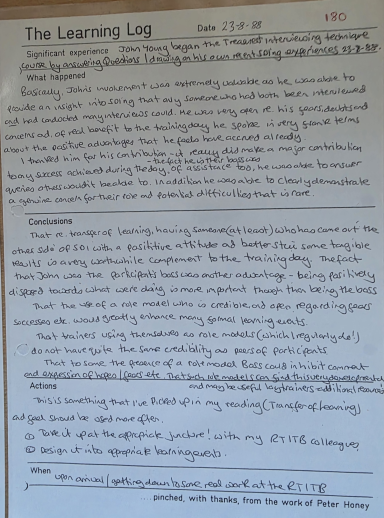 180
The Learning Log Date 23-8-88
Significant experience John Young began the Treasurers interviewing technique
course by answering Questions / drawing on his own recent soing experiences 23-8-88.
What happened
Basically. John's involvement was extremely valuable as he was able to
provide an insight into soing that only someone who had both been interviewed
and had conducted many interviews could. He was very open re. his fears, doubts and
concerns and. of real benefit to the training day he spoke in very frank terms
about the positive advantages that he feels have accrued already.
I thanked him for his contribution - it really did make a major contribution
to any success achieved during the day.
- the fact he is their boss was
of assistance too, he was able to answer
queries others wouldn't be able to. In addition he was able to clearly demonstrate
a genuine concern for their role and potential difficulties that is rare.
Conclusions
That re. transfer of learning, having someone (at least) who has come out the
other side of SOI with a positive attitude and better still some tangible
results is a very worthwhile complement to the training day. The fact
that John was the participants boss was another advantage - being positively
disposed towards what we're doing is more important though than being the boss
That the use of a role model who is credible and open regarding fears
successes etc. would greatly enhance many formal learning events.
That trainers using themselves as role models (which I regularly do!)
do not have quite the same credibility as peers of participants
That to some the presence of a role model Boss could inhibit comment
and expression of hopes / fears etc. That such role models can find this very developmental
and may be useful key trainers - additional resource
Actions
This is something that I've picked up in my reading (Transfer of Learning)
and feel should be used more often.
① Take it up at the appropriate juncture! with my RTITB colleagues
② Design it into appropriate learning events.
When
upon arrival / getting down to some real work at the RTITB
....pinched, with thanks, from the work of Peter Honey